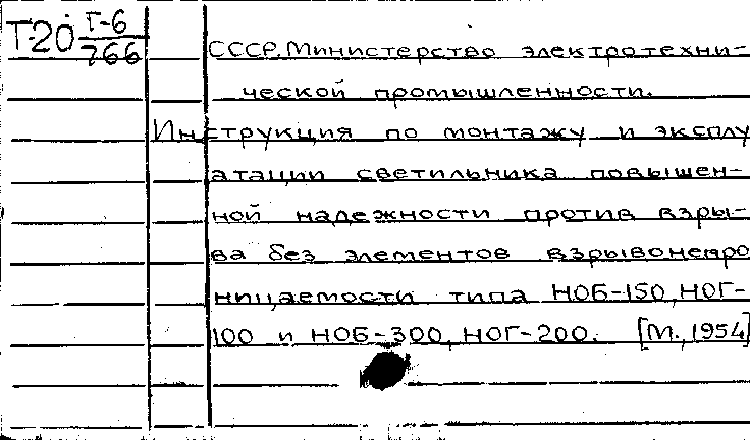 Т-20 Т-6
766
СССР. Министерство электротехни-
ческой промышленности.
Инструкция по монтажу и эксплу
атации светильника повышен-
ной надежности против взры-
ва без элементов взрывонепро
ницаемости типа НОБ-150, НОГ-
100 и НОБ-300, НОГ-200. [М., 1954]